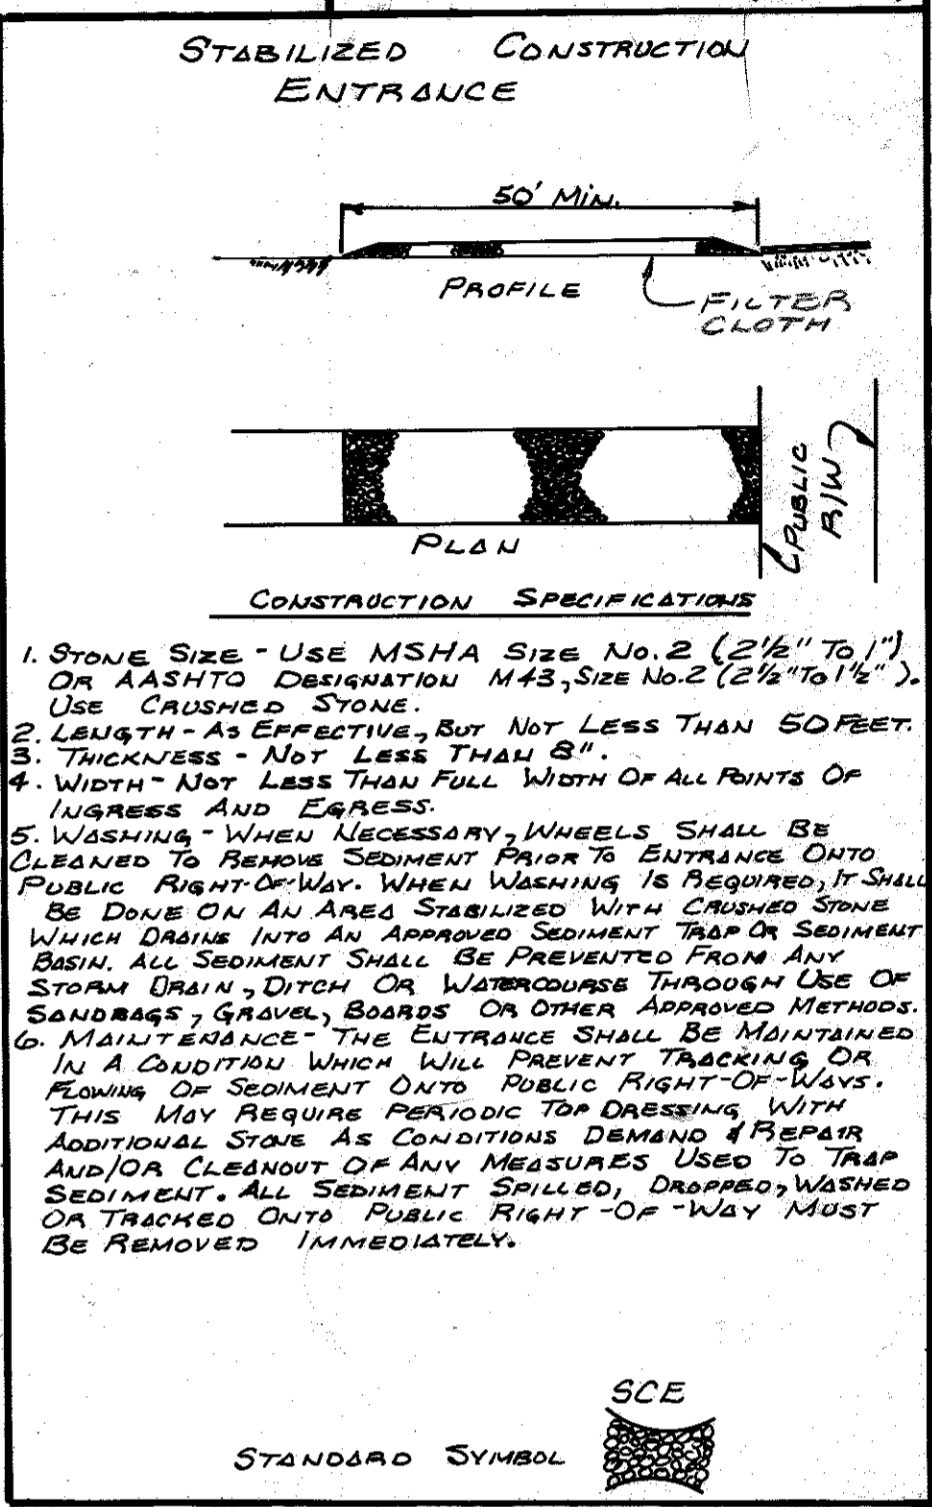 STABILIZED CONSTRUCTION
ENTRANCE
50' MIN.
PROFILE
FILTER
CLOTH
PUBLIC
R/W
PLAN
CONSTRUCTION SPECIFICATIONS
1. STONE SIZE - USE MSHA SIZE NO. 2 (2 1/2" TO 1")
OR AASHTO DESIGNATION M43, SIZE NO. 2 (2 1/2" TO 1 1/2").
USE CRUSHED STONE.
2. LENGTH - AS EFFECTIVE, BUT NOT LESS THAN 50 FEET.
3. THICKNESS - NOT LESS THAN 8".
4. WIDTH - NOT LESS THAN FULL WIDTH OF ALL POINTS OF
INGRESS AND EGRESS.
5. WASHING - WHEN NECESSARY, WHEELS SHALL BE
CLEANED TO REMOVE SEDIMENT PRIOR TO ENTRANCE ONTO
PUBLIC RIGHT-OF-WAY. WHEN WASHING IS REQUIRED, IT SHALL
BE DONE ON AN AREA STABILIZED WITH CRUSHED STONE
WHICH DRAINS INTO AN APPROVED SEDIMENT TRAP OR SEDIMENT
BASIN. ALL SEDIMENT SHALL BE PREVENTED FROM ANY
STORM DRAIN, DITCH OR WATERCOURSE THROUGH USE OF
SANDBAGS, GRAVEL, BOARDS OR OTHER APPROVED METHODS.
6. MAINTENANCE - THE ENTRANCE SHALL BE MAINTAINED
IN A CONDITION WHICH WILL PREVENT TRACKING OR
FLOWING OF SEDIMENT ONTO PUBLIC RIGHT-OF-WAYS.
THIS MAY REQUIRE PERIODIC TOP DRESSING WITH
ADDITIONAL STONE AS CONDITIONS DEMAND & REPAIR
AND/OR CLEANOUT OF ANY MEASURES USED TO TRAP
SEDIMENT. ALL SEDIMENT SPILLED, DROPPED, WASHED
OR TRACKED ONTO PUBLIC RIGHT-OF-WAY MUST
BE REMOVED IMMEDIATELY.
SCE
STANDARD SYMBOL